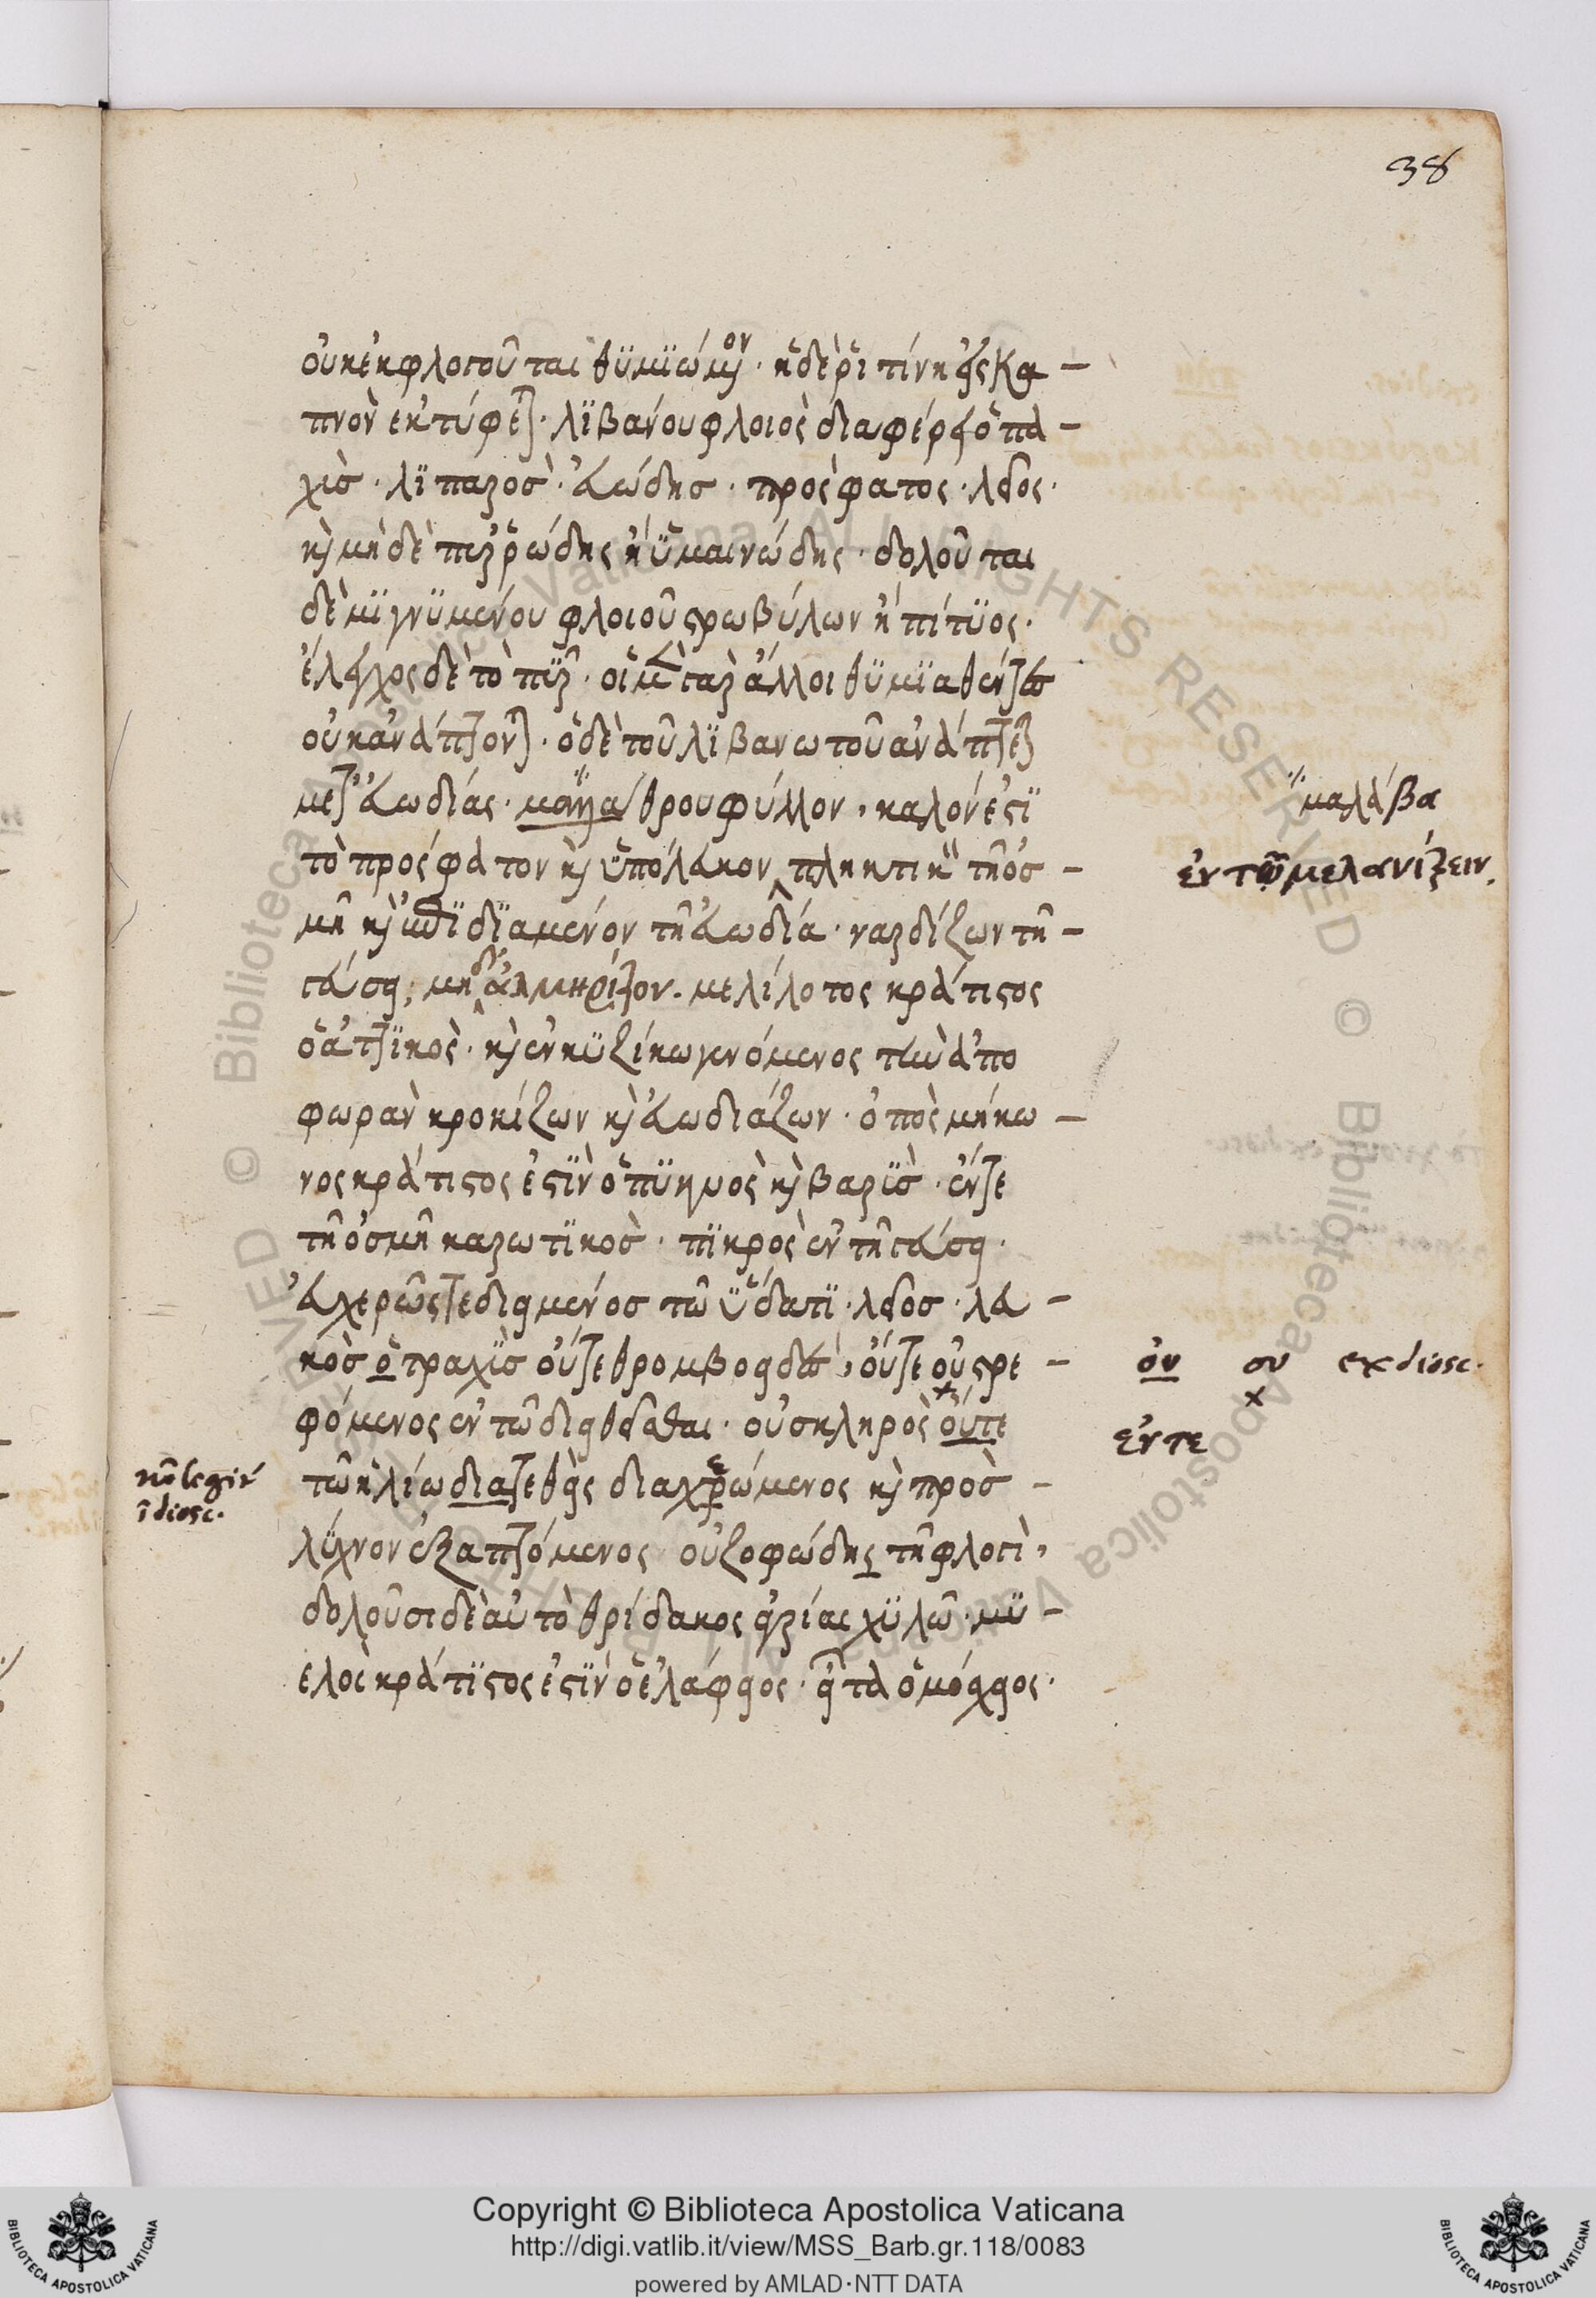 38
οὐκ ἐκφλογοῦται θϋμϊώμον · ἡ δὲ ῥιτίνη εἰς κα –
πνὸν ἐκτύφεται · λϊβάνου φλοιὸς διαφέρει ὁ πα –
χὺσ · λϊπαρὸσ · εὐώδησ · πρόσφατος · λεῖος ·
καὶ μὴ δὲ ψωρώδης ἢ ὑμαινώδης · δολοῦται
δὲ μϊγνϋμένου φλοιοῦ στρωβύλων ἢ πίτϋος ·
ἔλεγχος δὲ τὸ πῦρ · οἱ μὲν γὰρ ἄλλοι θϋμϊαθέντες
οὐκ ἀνάπτονται · ὁ δὲ τοῦ λϊβανωτοῦ ἀνάπτεται
μετ' εὐωδίας · μαλα/θρου φύλλον, καλόν ἐστϊ
τὸ πρόσφατον καὶ ὑπόλευκον πληκτικὸν τῇ ὀσ –
μῇ καὶ ἐπιδϊαμένον τῇ εὐωδία · ναρδίζων τῇ –
γεύσει, μὴ δ' ἁλμηρίζον. μελίλοτος κράτιστος
ὁ ἀττϊκὸς · καὶ ἐν κϋζίκω γενόμενος τὴν ἀπο
φωρὰν κροκίζων καὶ εὐωδιάζων · ὀπὸς μήκω –
νος κράτιστος ἐστϊν ὁ πϋκνὸς καὶ βαρϋσ · ἔντε
τῇ ὀσμῇ καρωτϊκὸσ · πϊκρὸς ἐν τῇ γεύσει ·
εὐχερῶς τε διειμένοσ τῶ ὕδατϊ · λεῖοσ · λευ –
κὸσ ὁ τραχϋσ οὔτε θρομβοειδὴς, οὔτε οὐστρε –
φόμενος ἐν τῶ διειθεῖσθαι · οὐ σκληρὸς οὔτε
τῶ ἡλίω διατεθεὶς διαχεώμενος καὶ πρὸσ –
λϋχνον ἐξαπτόμενος οὐ ζοφώδης τῇ φλογὶ,
δολοῦσι δὲ αὐτὸ θρίδακος ἀγρίας χϋλῶ · μϋ –
ελὸς κράτϊστος ἐστϊν ὁ ἐλάφειος · εἶτα ὁ μόσχειος ·
μαλάβα
ἐν τῶ μελανίζειν.
ὀυ συ ex diosc.
ἔντε
diosc.
Copyright © Biblioteca Apostolica Vaticana
http://digi.vatlib.it/view/MSS_Barb.gr.118/0083
powered by AMLAD·NTT DATA
BIBLIOTECA APOSTOLICA VATICANA
BIBLIOTECA APOSTOLICA VATICANA